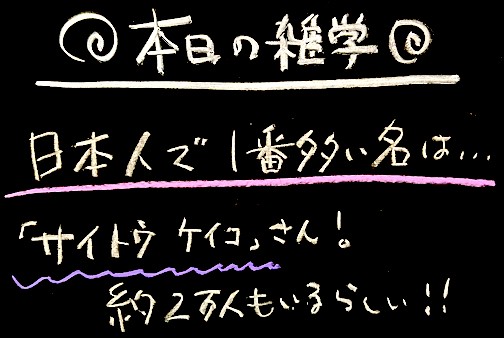 本日の雑学
日本人で1番多い名は...
「サイトウ ケイコ」さん!
約2万人もいるらしい!!